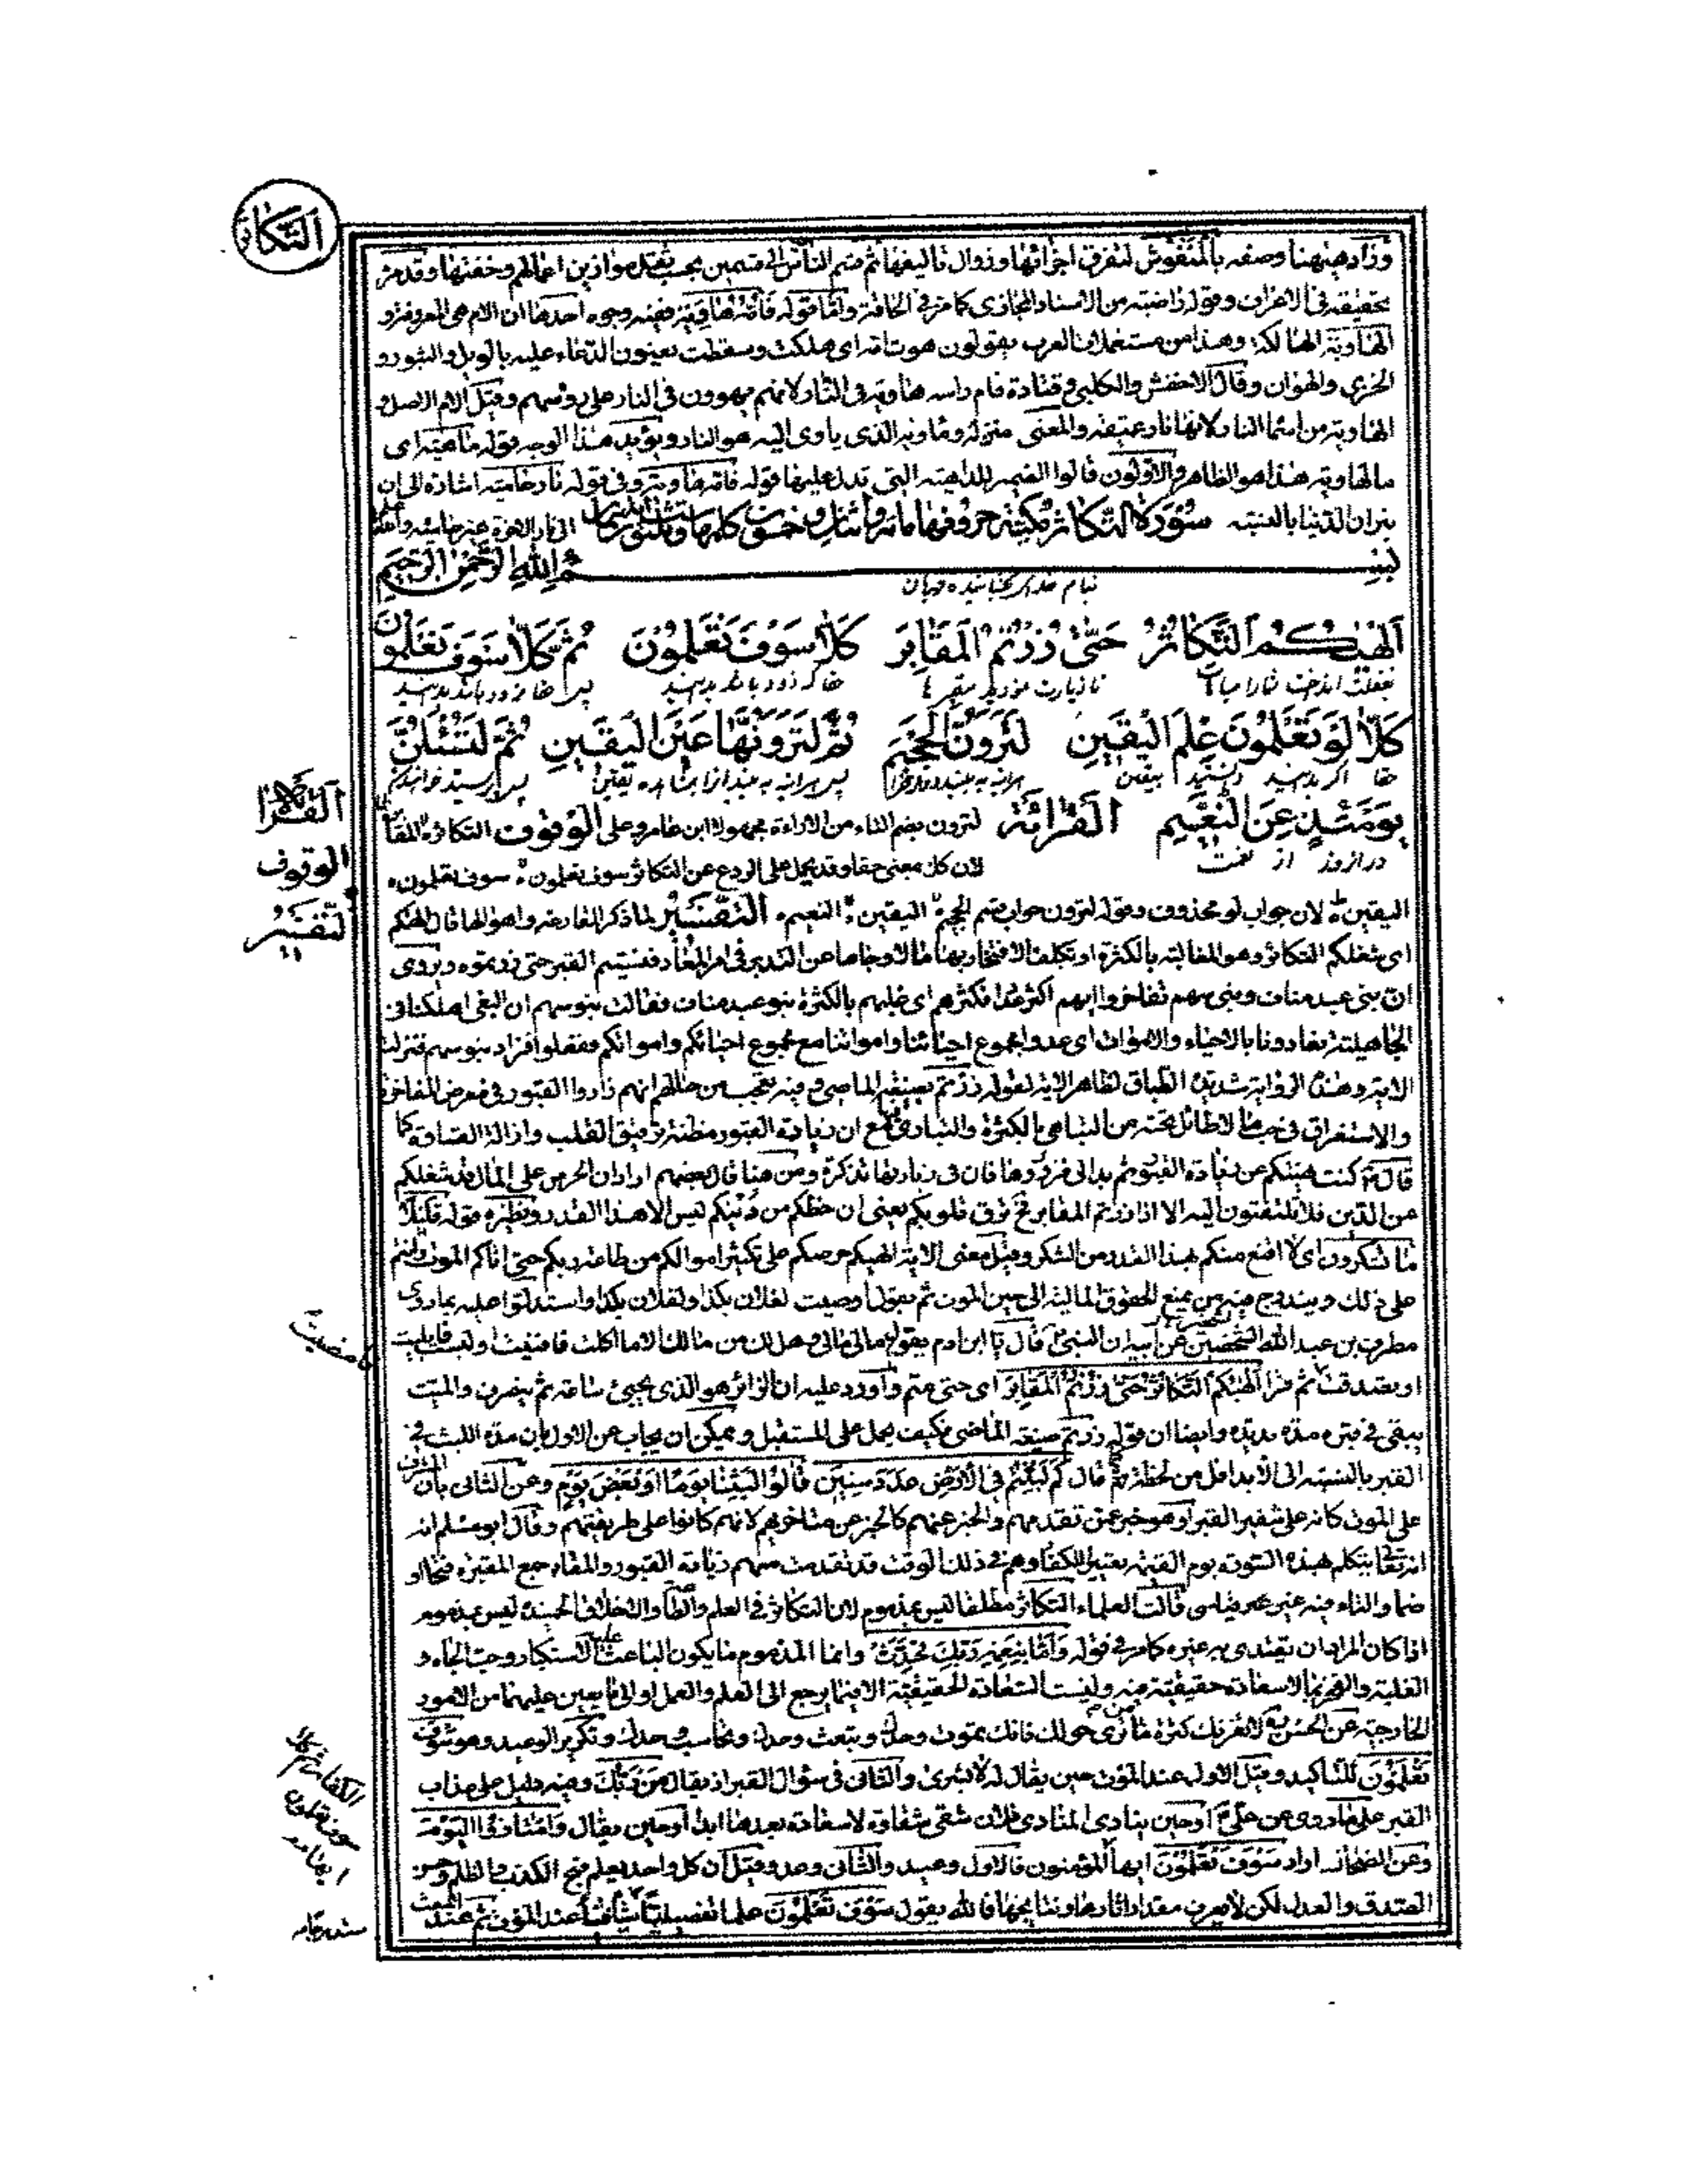 التكاثر
وزاد ههنا وصفه بالمنفوش لتفرق اجزائها وزوال تاليفها ثم قسم الناس الى قسمين بحسب ثقل موازين اعمالهم وخفتها وقد مر
تحقيقه فى الاعراف وقوله راضية من الاسناد المجازى كما مر فى الحاقة واما قوله فامه هاوية ففيه وجوه احدها ان الام هى المعروفة و
الهاوية الهالكة وهذا من مستعملات العرب يقولون هوت امه اى هلكت وسقطت يعنون الدعاء عليه بالويل والثبور و
الخزى والهوان وقال الاخفش والكلبى وقتادة فام راسه هاوية فى النار لانهم يهوون فى النار على روسهم وقيل الام الاصل و
الهاوية من اسماء النار لانها نار عتيقة والمعنى منزله وماويه الذى ياوى اليه هو النار ويؤيد هذا الوجه قوله ما هيه اى
ما الهاوية هذا هو الظاهر والاولون قالوا الضمير للداهية التى تدل عليها قوله فامه هاوية وفى قوله نار حامية اشارة الى ان
نيران الدنيا بالنسبة الى نار الاخرة غير حامية
سورة التكاثر مكية حروفها مائة واثنان وخمسون كلمها
بسم الله الرحمن الرحيم
بنام خداى بخشاينده مهربان
الهىكم التكاثر حتى زرتم المقابر كلا سوف تعلمون ثم كلا سوف تعلمون
بغفلت انداخت شما را تا زيارت مقبرها حقا كه زود باشد بدانيد پس حقا زود باشد بدانيد
كلا لو تعلمون علم اليقين لترون الجحيم ثم لترونها عين اليقين ثم لتسئلن
حقا اگر بدانيد يقين
يومئذ عن النعيم القرائة لترون بضم التاء من الاراءة مجهولا ابن عامر وعلى الوقوف التكاثر المقابر
در آنروز از نعمت لان كلا بمعنى حقا وقد يحمل على الردع عن التكاثر سوف تعلمون سوف تعلمون
القرائة
الوقوف
التفسير
اليقين لان جواب لو محذوف وقوله لترون جواب قسم الجحيم اليقين النعيم التفسير لما ذكر القارعة واهوالها قال الهيكم
اى شغلكم التكاثر وهو المغالبة بالكثرة او تكلف الافتخار بها مالا وجاها عن التدبر فى امر المعاد فنسيتم القبر حتى زرتموه ويروى
ان بنى عبد مناف وبنى سهم تفاخروا ايهم اكثر عددا فكثرهم اى غلبهم بالكثرة بنو عبد مناف فقالت بنو سهم ان البغى اهلكنا فى
الجاهلية فعادونا بالاحياء والاموات اى عدوا مجموع احيائنا وامواتنا مع مجموع احيائكم وامواتكم ففعلوا فزاد بنو سهم فنزلت
الاية وهذه الرواية شديدة الطباق لظاهر الاية لقوله زرتم بصيغة الماضى وفيه تعجب من حالهم انهم زاروا القبور فى معرض المفاخرة
والاستغراق فى حب ما لا طائل تحته من التباهى بالكثرة والتبارى مع ان زيارة القبور مظنة ترقيق القلب وازالة القساوة كما
قال كنت نهيتكم عن زيارة القبور ثم بدا لى فزوروها فان فى زيارتها تذكرة ومن هنا قال بعضهم اراد ان الحرص على المال قد شغلكم
عن الدين فلا تلتفتون اليه الا اذا زرتم المقابر ترق قلوبكم يعنى ان حظكم من دينكم ليس الا هذا القدر ونظيره قوله قليلا
ما تشكرون اى لا اقنع منكم بهذا القدر من الشكر وقيل معنى الاية الهيكم حرصكم على تكثير اموالكم من طاعة ربكم حتى اتاكم الموت وانتم
على ذلك ويندرج فيه من يمنع الحقوق المالية الى حين الموت ثم يقول اوصيت لفلان بكذا ولفلان بكذا واستدلوا عليه بما روى
مطرف بن عبد الله الشخير عن ابيه ان النبى قال يا ابن ادم يقول مالى مالى وهل لك من مالك الا ما اكلت فافنيت او لبست فابليت
او تصدقت ثم قرا الهيكم التكاثر حتى زرتم المقابر اى حتى متم واورد عليه ان الزائر هو الذى يجىء ساعة ثم ينصرف والميت
يبقى فى قبره مدة مديدة وايضا ان قوله زرتم صيغة الماضى فكيف يحمل على المستقبل ويمكن ان يجاب عن الاول بان مدة اللبث فى
القبر بالنسبة الى الابد اقل من لحظة قال كم لبثتم فى الارض عدد سنين قالوا لبثنا يوما او بعض يوم وعن الثانى بان المشرف
على الموت كانه على شفير القبر او هو خبر عمن تقدمهم والخبر عنهم كالخبر عن متاخريهم لانهم كانوا على طريقتهم وقال ابو مسلم انه
انه تعالى يتكلم بهذه السورة يوم القيمة تعييرا للكفار وهم فى ذلك الوقت قد تقدمت منهم زيارة القبور والمقابر جمع المقبرة فتحا او
ضما والتاء فيه غير قياسى قالت العلماء التكاثر مطلقا ليس بمذموم لان التكاثر فى العلم والطاعة والاخلاق الحسنة ليس بمذموم
اذا كان المراد ان يقتدى به غيره كما مر فى قوله واما بنعمة ربك فحدث وانما المذموم ما يكون الباعث عليه الاستكبار وحب الجاه و
الغلبة والفخر بما لا سعادة حقيقية فيه وليست السعادة الحقيقية الا فيما يرجع الى العلم والعمل او الى ما يعين عليهما من الامور
الخارجية عن الحسن لا تغرنك كثرة من ترى حولك فانك تموت وحدك وتبعث وحدك وتحاسب وحدك وتكرير الوعيد وهو سوف
تعلمون للتاكيد وقيل الاول عند الموت حين يقال له لا بشرى والثانى فى سؤال القبر اذ يقال من ربك وفيه دليل على عذاب
القبر على ما روى عن على او حين ينادى المنادى فلان شقى شقاوة لا سعادة بعدها ابدا او حين يقال وامتازوا اليوم
وعن الضحاك اراد سوف تعلمون ايها المؤمنون فالاول وعيد والثانى وعد وقيل ان كل واحد يعلم قبح الكذب والظلم وحسن
الصدق والعدل لكن لا يعرف مقدار اثارها ونتايجها فالله يقول سوف تعلمون علما تفصيليا عند الموت ثم عند البعث
الكفار ثم كلا
سوف تعلمون